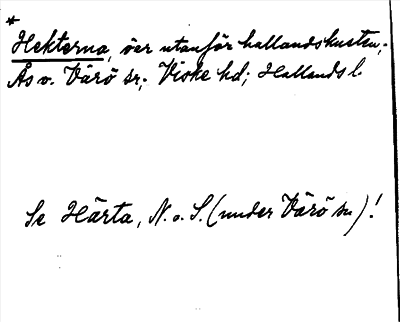 *
Hekterna, öer utanför hallandskusten,
Ås o. Värö sr; Viske hd; Hallands l.
Se Härta, N. o. S. (under Värö sn)!